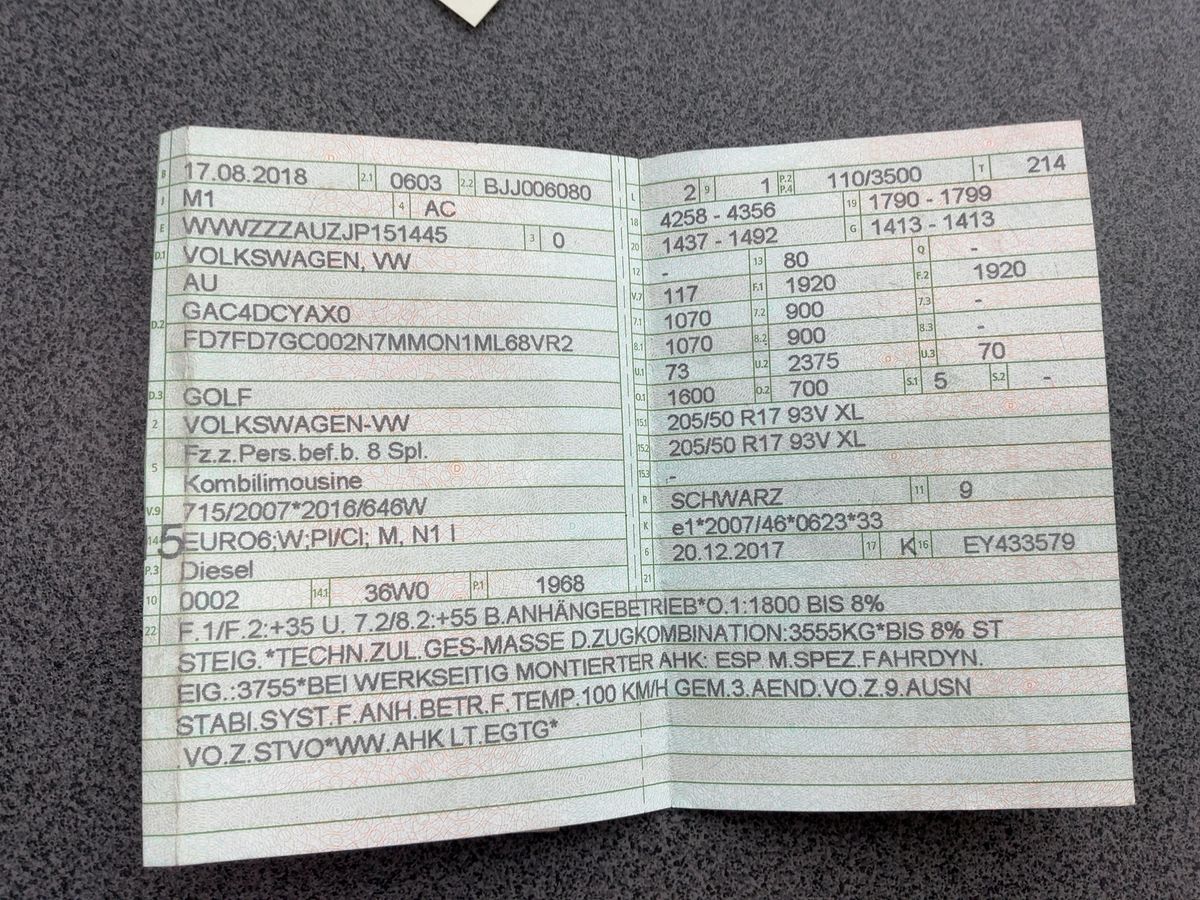 B 17.08.2018 2.1 0603 2.2 BJJ006080
J M1 4 AC
E WVWZZZAUZJP151445 3 0
D.1 VOLKSWAGEN, VW
AU
D.2 GAC4DCYAX0
FD7FD7GC002N7MMON1ML68VR2
D.3 GOLF
2 VOLKSWAGEN-VW
5 Fz.z.Pers.bef.b. 8 Spl.
Kombilimousine
V.9 715/2007*2016/646W
14 5 EURO6;W;PI/CI; M, N1 I
P.3 Diesel
10 0002 14.1 36W0 P.1 1968
L 2 9 1 P.2 P.4 110/3500 T 214
18 4258 - 4356 19 1790 - 1799
20 1437 - 1492 G 1413 - 1413
12 - 13 80 Q -
V.7 117 F.1 1920 F.2 1920
7.1 1070 7.2 900 7.3 -
8.1 1070 8.2 900 8.3 -
U.1 73 U.2 2375 U.3 70
O.1 1600 O.2 700 S.1 5 S.2 -
15.1 205/50 R17 93V XL
15.2 205/50 R17 93V XL
15.3 -
R SCHWARZ 11 9
K e1*2007/46*0623*33
6 20.12.2017 17 K 16 EY433579
21
22 F.1/F.2:+35 U. 7.2/8.2:+55 B.ANHÄNGEBETRIEB*O.1:1800 BIS 8%
STEIG.*TECHN.ZUL.GES-MASSE D.ZUGKOMBINATION:3555KG*BIS 8% ST
EIG.:3755*BEI WERKSEITIG MONTIERTER AHK: ESP M.SPEZ.FAHRDYN.
STABI.SYST.F.ANH.BETR.F.TEMP.100 KM/H GEM.3.AEND.VO.Z.9.AUSN
.VO.Z.STVO*WW.AHK LT.EGTG*